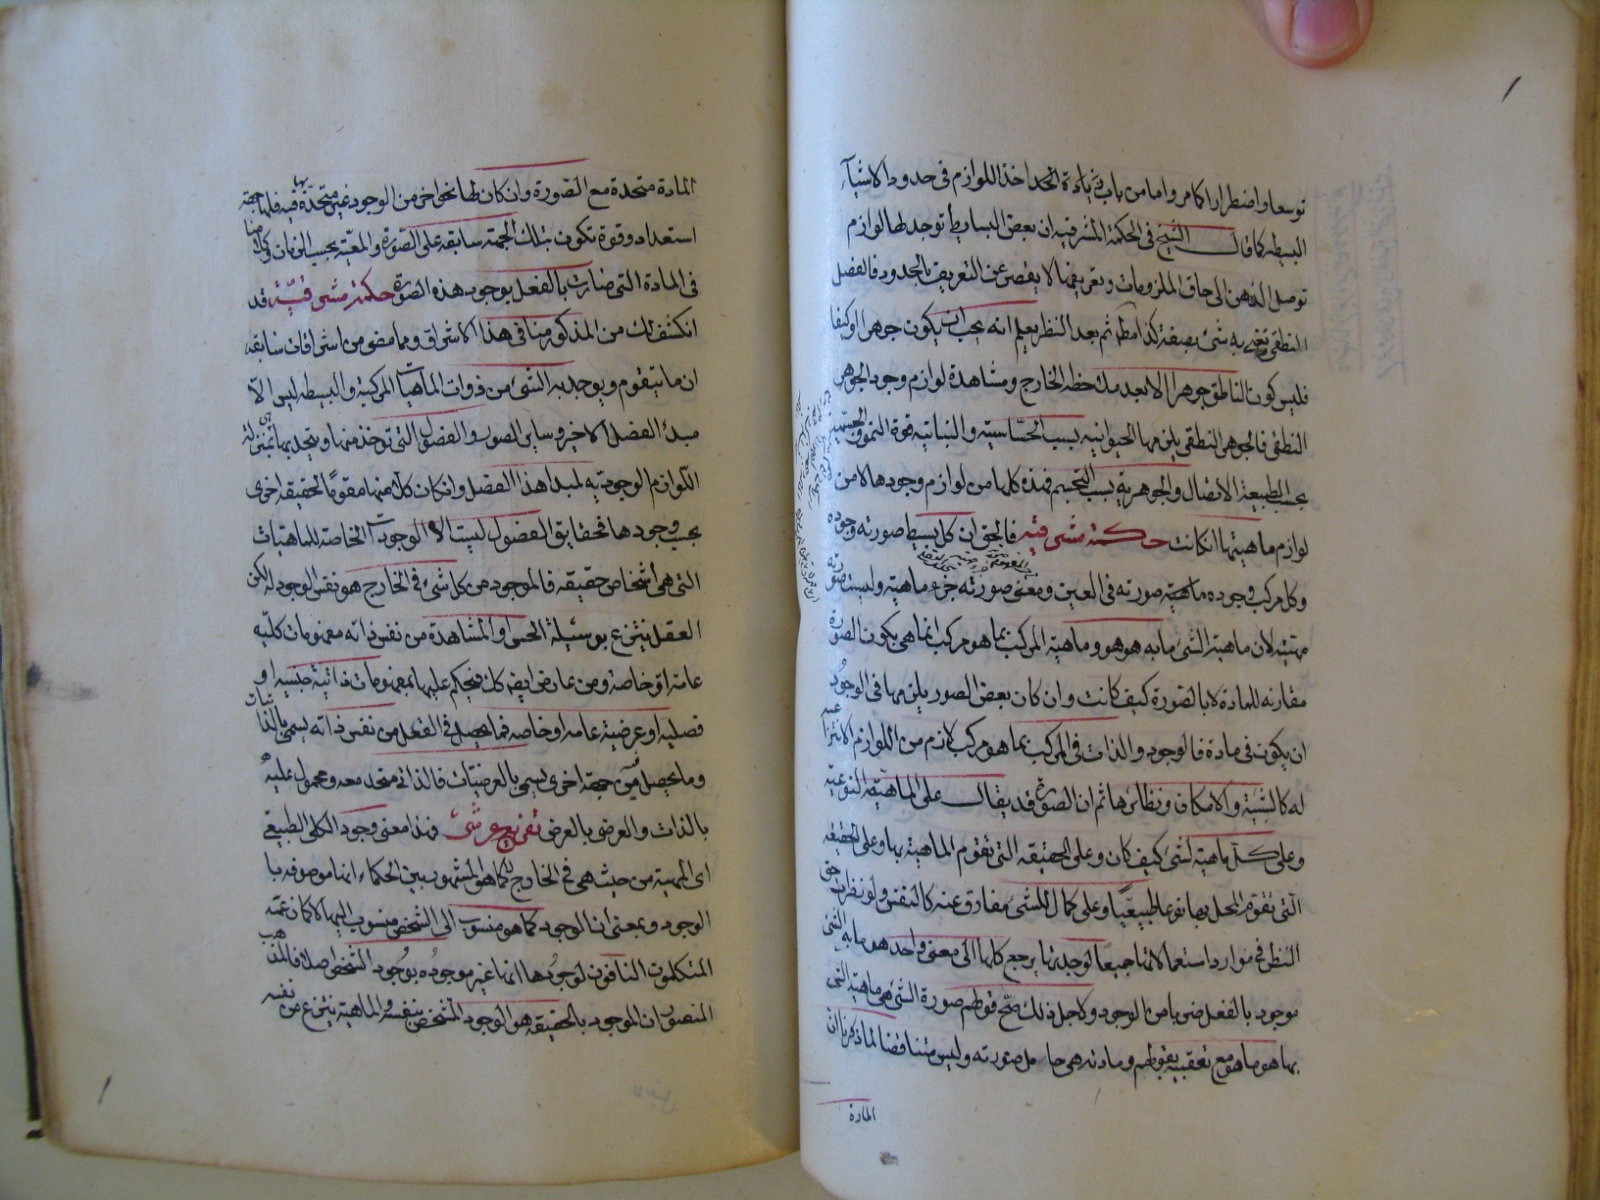 توسعا واضطرارا كما مر واما من باب زيادة الحد اخذ اللوازم في حدود الاشياء
البسيطه كما قال الشيخ في الحكمة المشرقيه ان بعض البسايط توجد لها لوازم
توصل الذهن الى حاق الملزومات وتعريفها لا يقصر عن التعريف بالحدود فالفصل
النطقي يعني به شئ بصفة كذا مطلقا ثم بعد النظر يعلم انه يجب ان يكون جوهرا او كيفا
فليس كون الناطق جوهرا الا بعد ملاحظه الخارج ومشاهدة لوازم وجود الجوهر
النطقي فالجوهر النطقي يلزمها الحيوانيه بسبب الحساسية والنباتيه قوة النمو والجسميه
بحسب الطبيعة الاتصال والجوهرية بسبب التجسيم فهذه كلها من لوازم وجودها لا من
لوازم ماهيتها ان كانت حكمة مشرقيه فالحق ان كل بسيط صورته وجوده
وكل مركب وجوده ماهية صورته في العين ومعنى صورته جزء ماهية وليست صورته
مهيته لان ماهية الشئ ما به هو هو وماهية المركب بما هو مركب انما هي بكون الصورة
مقارنه للمادة لا بالصورة كيف كانت وان كان بعض الصور يلزمها في الوجود
ان يكون في مادة فالوجود والذات في المركب بما هو مركب لازم من اللوازم الانتزاعيه
له كالشيئية والامكان ونظائرها ثم ان الصورة قد يقال على الماهية النوعية
وعلى كل ماهية لشئ كيف كان وعلى الحقيقه التي تقوم الماهية بها وعلى الحقيقه
التي تقوم المحل بها نوعا طبيعيا وعلى كمال للشئ مفارق عنه كالنفس ولو نظرت حق
النظر في موارد استعمالاتها جميعا لوجدتها يرجع كلها الى معنى واحد هو ما به الشئ
موجود بالفعل ضربا من الوجود ولاجل ذلك صح قولهم صورة الشئ هي ماهية التي
بها هو ما هو مع تعقبيه بقولهم ومادته هي حامل صورته وليس متناقضا لما ذكرنا ان
المادة
المادة متحدة مع الصورة وان كان لها نحو اخر من الوجود غير متحدة بها فيه فلها جهة
استعداد وقوة تكون بتلك الجهة سابقه على الصورة والمعية بحسب الزمان
في المادة التي صارت بالفعل بوجود هذه الصورة حكمة مشرقية قد
انكشف لك من المذكور منا في هذا الاشراق ومما مضى من اشراقات سابقه
ان ما يتقوم ويوجد به الشئ من ذوات الماهيات المركبة والبسيطه ليس الا
مبدء الفصل الاخير وساير الصور والفصول التي توخذ منها ويتحد بها هي بمنزلة
اللوازم الوجوديه لمبدا هذا الفصل وان كان كل منها مقوما لحقيقه اخرى
بحسب وجودها فحقايق الفصول ليست الا الوجودات الخاصة للماهيات
التي هي اشخاص حقيقه فالموجود من كل شئ في الخارج هو نفس الوجود له لكن
العقل ينتزع بوسيلة الحس او المشاهدة من نفس ذاته مفهومات كليه
عامة او خاصة ومن عارض ايضا كذلك فيحكم عليها بمفهومات ذاتية جنسيه او
فصليه او عرضية عامه او خاصه فما يحصل في العقل من نفس ذاته يسمى بالذاتيات
وما يحصل فيه من جهة اخرى يسمى بالعرضيات فالذاتي متحد معه ومحمول عليه
بالذات والعرضي بالعرض تفريع عرشي فهذا معنى وجود الكلي الطبيعي
اى المهية من حيث هي في الخارج لا كما هو المشهور بين الحكماء انها موصوفه با
الوجود وبمعنى ان الوجود كما هو منسوب الى الشخص منسوب اليها لا كما زعمه
المتكلمون النافون لوجودها انها غير موجوده بوجود الشخص اصلا فالمذهب
المنصور ان الموجود بالحقيقه هو الوجود المتشخص بنفسه والماهية ينتزع من نفسه